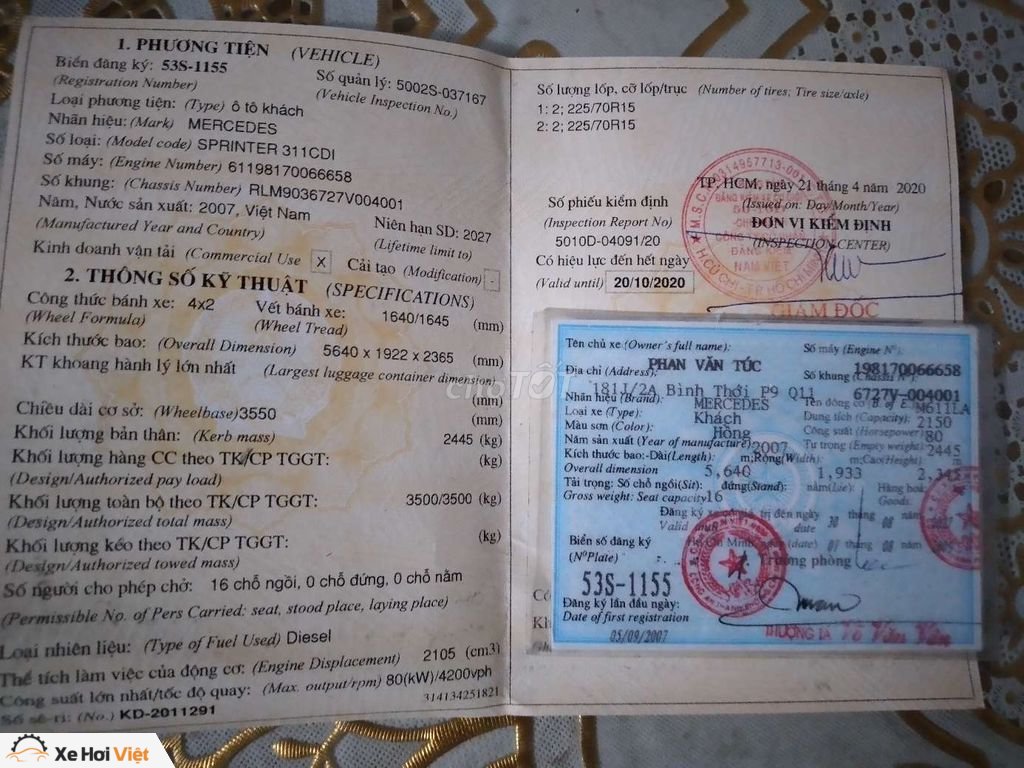 1. PHƯƠNG TIỆN (VEHICLE)
Biển đăng ký: 53S-1155
(Registration Number)
Số quản lý: 5002S-037167
(Vehicle Inspection No.)
Loại phương tiện: (Type) ô tô khách
Nhãn hiệu: (Mark) MERCEDES
Số loại: (Model code) SPRINTER 311CDI
Số máy: (Engine Number) 61198170066658
Số khung: (Chassis Number) RLM9036727V004001
Năm, Nước sản xuất: 2007, Việt Nam
(Manufactured Year and Country)
Niên hạn SD: 2027
(Lifetime limit to)
Kinh doanh vận tải (Commercial Use X
Cải tạo (Modification) -
2. THÔNG SỐ KỸ THUẬT (SPECIFICATIONS)
Công thức bánh xe: 4x2
(Wheel Formula)
Vết bánh xe: 1640/1645 (mm)
(Wheel Tread)
Kích thước bao: (Overall Dimension) 5640 x 1922 x 2365 (mm)
KT khoang hành lý lớn nhất (Largest luggage container dimension)
(mm)
Chiều dài cơ sở: (Wheelbase) 3550 (mm)
Khối lượng bản thân: (Kerb mass) 2445 (kg)
Khối lượng hàng CC theo TK/CP TGGT: (kg)
(Design/Authorized pay load)
Khối lượng toàn bộ theo TK/CP TGGT: 3500/3500 (kg)
(Design/Authorized total mass)
Khối lượng kéo theo TK/CP TGGT: (kg)
(Design/Authorized towed mass)
Số người cho phép chở: 16 chỗ ngồi, 0 chỗ đứng, 0 chỗ nằm
(Permissible No. of Pers Carried: seat, stood place, laying place)
Loại nhiên liệu: (Type of Fuel Used) Diesel
Thể tích làm việc của động cơ: (Engine Displacement) 2105 (cm3)
Công suất lớn nhất/tốc độ quay: (Max. output/rpm) 80(kW)/4200vph
314134251821
Số sê-ri: (No.) KD-2011291
Số lượng lốp, cỡ lốp/trục (Number of tires; Tire size/axle)
1: 2; 225/70R15
2: 2; 225/70R15
TP. HCM, ngày 21 tháng 4 năm 2020
(Issued on: Day/Month/Year)
Số phiếu kiểm định
(Inspection Report No)
5010D-04091/20
ĐƠN VỊ KIỂM ĐỊNH
(INSPECTION CENTER)
Có hiệu lực đến hết ngày
(Valid until) 20/10/2020
GIÁM ĐỐC
Tên chủ xe (Owner's full name):
PHAN VĂN TÚC
Số máy (Engine Nº):
198170066658
Địa chỉ (Address):
181J/2A Bình Thới P9 Q11
Số khung (Chassis Nº):
6727V-004001
Nhãn hiệu (Brand): MERCEDES
M611LA
Loại xe (Type): Khách
Dung tích (Capacity): 2150
Màu sơn (Color): Hồng
Công suất (Horsepower) 80
Năm sản xuất (Year of manufacture) 2007
Tự trọng (Empty weight) 2445
Kích thước bao: Dài (Length): m; Rộng (Width): m; Cao (Height) m
Overall dimension 5,640 1,933
Tải trọng: Số chỗ ngồi (Sit): đứng (Stand): nằm (Lie): Hàng hoá
Gross weight: Seat capacity 16 Goods:
Biển số đăng ký
(Nº Plate)
53S-1155
Trưởng phòng
Đăng ký lần đầu ngày:
Date of first registration
05/09/2007
THƯỢNG TÁ
choTỐT
Xe Hơi Việt